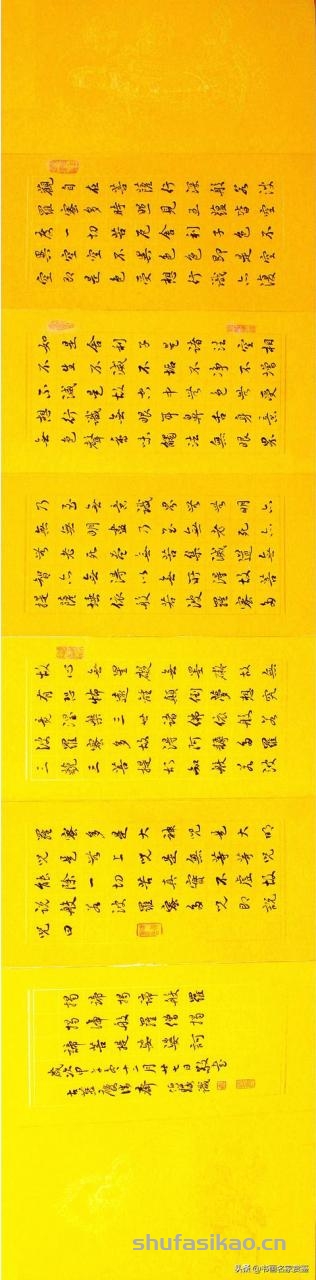 觀自在菩薩行深般若波
羅蜜多時照見五蘊皆空
度一切苦厄舍利子色不
異空空不異色色即是空
空即是色受想行識亦復
如是舍利子是諸法空相
不生不滅不垢不淨不增
不減是故空中無色無受
想行識無眼耳鼻舌身意
無色聲香味觸法無眼界
乃至無意識界無無明亦
無無明盡乃至無老死亦
無老死盡無苦集滅道無
智亦無得以無所得故菩
提薩埵依般若波羅蜜多
故心無罣礙無罣礙故無
有恐怖遠離顛倒夢想究
竟涅槃三世諸佛依般若
波羅蜜多故得阿耨多羅
三藐三菩提故知般若波
羅蜜多是大神咒是大明
咒是無上咒是無等等咒
能除一切苦真實不虛故
說般若波羅蜜多咒即說
咒曰
揭諦揭諦般羅
揭諦般羅僧揭
諦菩提娑婆訶
歲次甲午年十二月廿七日敬書
shufasikao.cn
头条 @书画名家赏鉴